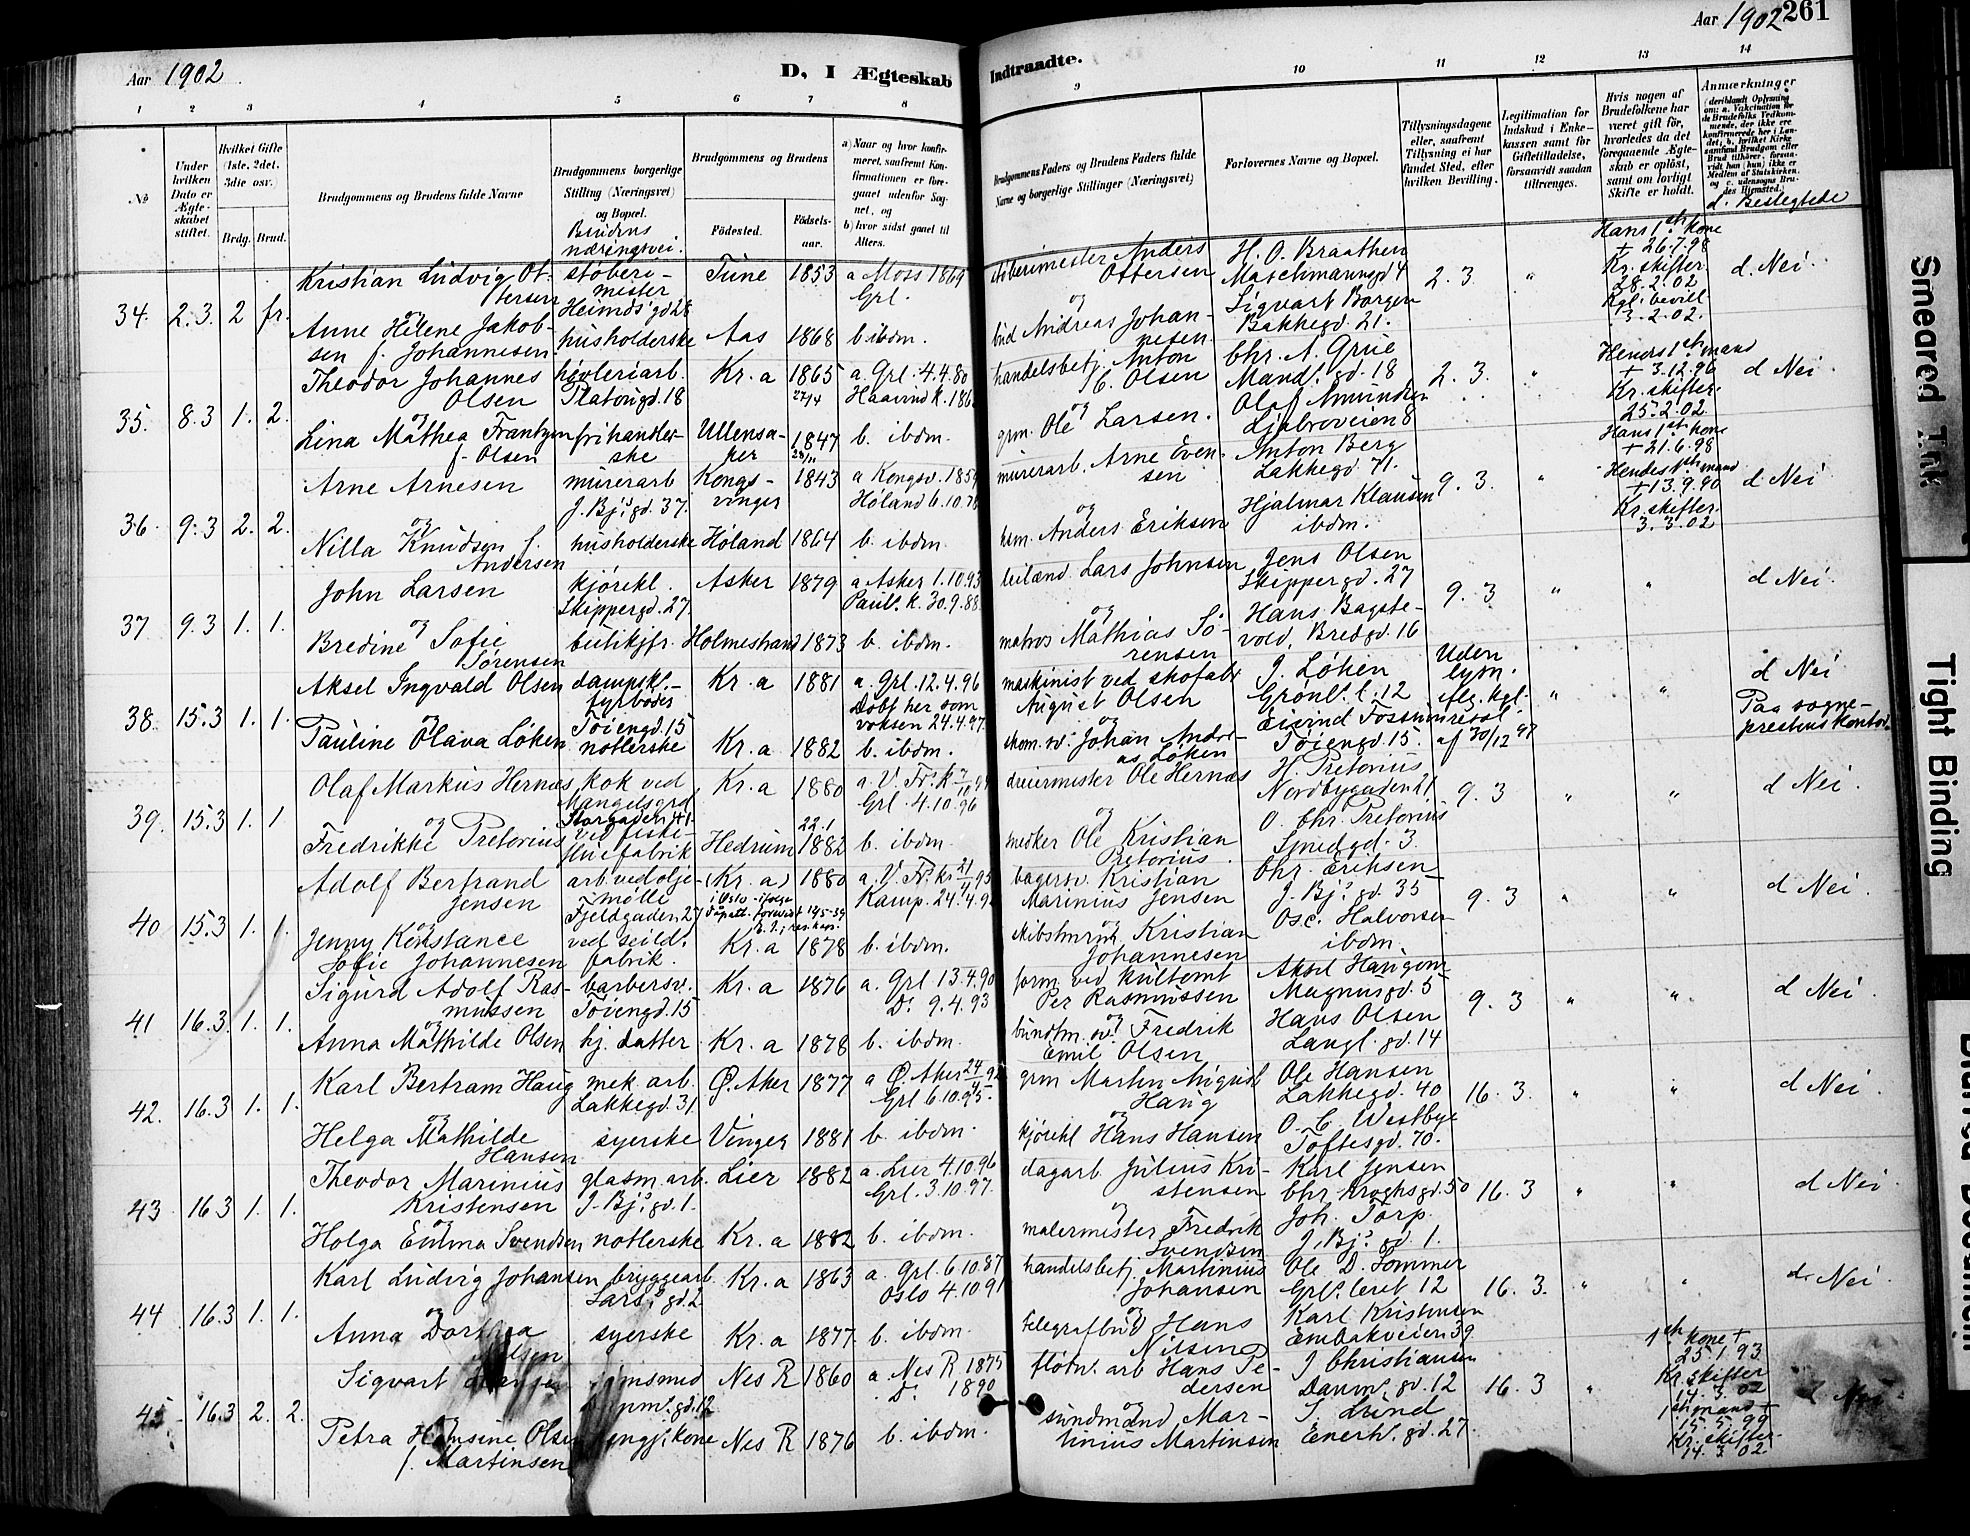 Aar 1902
D, I Ægteskab
Indtraadte.
Aar 1902 261
1 2 3 4 5 6 7 8 9 10 11 12 13 14
No
Under hvilken Dato er Ægteskabet stiftet.
Hvilket Gifte (1ste, 2det, 3die osv.)
Brdg. Brud.
Brudgommens og Brudens fulde Navne
Brudgommens borgerlige Stilling (Næringsvei) og Bopæl.
Brudens næringsvei.
Brudgommens og Brudens
Fødested. Fødselsaar.
a) Naar og hvor konfirmeret, saafremt Konfirmationen er foregaaet udenfor Sognet, og
b) hvor sidst gaaet til Alters.
Brudgommens Faders og Brudens Faders fulde Navne og borgerlige Stillinger (Næringsvei)
Forlovernes Navne og Bopæl.
Tillysningsdagene eller, saafremt Tillysning ei har fundet Sted, efter hvilken Bevilling.
Legitimation for Indskud i Enkekassen samt for Giftetilladelse, forsaavidt saadan tiltrænges.
Hvis nogen af Brudefolkene har været gift før, hvorledes da det foregaaende Ægteskab er opløst, samt om lovligt Skifte er holdt.
Anmærkninger
d. Beslegtede
34. 2.3. 2 fr.
Kristian Ludvig Ottersen
støberimester
Heimds gd 28
Tune 1853 a Moss 1869
Grl.
støberimester Anders Ottersen
H. O. Braathen
Maschmannsgd 4
2.3. "
Hans 1ste kone
+ 26.7.98
Kr. skifter
28.2.02
Kgl. bevill.
3.2.02.
d. Nei.
og
Anne Helene Jakobsen f. Johannesen
husholderske Aas 1868 b ibdm.
og
bud Andreas Johannesen
Sigvart Borgen
Bakkegd. 21.
35. 8.3 1. 2.
Theodor Johannes Olsen
høvleriarb.
Platousgd. 18
Kr.a 1865 27/4
a. Grl. 4.4.80
handelsbetj. Anton C. Olsen
Chr. A. Grue
Mandl. gd. 18
2.3. "
Hendes 1ste mand
+ 3.12.96
Kr. skifter
25.2.02
d Nei.
og
Lina Mathea Frantzen f. Olsen
frihandlerske
Ullensaker 1847 b. ibdm.
og
grm. Ole Larsen.
Olaf Amundsen
Ljabroveien 8
36. 9.3 2. 2.
Arne Arnesen
murerarb
J. Bj. gd. 37.
Kongsvinger 1843
a Kongsv. 1859
murerarb. Arne Evensen
Anton Berg
Lakkegd. 71.
9.3. "
Hans 1ste kone
+ 21.6.98
Hendes 1ste mand
+ 13.9.90
Kr. skifter
3.3.02
d Nei.
og
Nilla Knudsen f. Andersen
husholderske Høland 1864 b. ibdm.
og
hsm. Anders Eriksen
Hjalmar Klausen
ibdm.
37 9.3 1. 1.
John Larsen
kjørekl.
Skippergd. 27.
Asker 1879 a Asker 1.10.93
Paul. k. 30.9.88.
leilænd. Lars Johnsen
Jens Olsen
Skippergd. 27
9.3 " "
d Nei.
og
Bredine Sofie Sørensen
butikjfr. Holmestrand 1873 b. ibdm.
og
matros Mathias Sørensen
Hans Bagstevold, Bredgd. 16
38. 15.3 1. 1.
Aksel Ingvald Olsen
dampsk.-fyrbøder
Tøiengd. 15
Kr.a 1881 a. Grl. 12.4.96
Døbt her som voksen 24.4.97.
maskinist ved skofabr August Olsen
J. Løken
Grønl. l. 12
Uden lysn.
iflg. kgl. resol.
af 30/12 97
" "
d Nei
Paa sogneprestens kontor.
og
Pauline Olava Løken
notlerske Kr.a 1882 b. ibdm.
og
skom. sv. Johan Andreas Løken
Eivind Fossum
Tøiengd. 15.
39. 15.3 1. 1
Olaf Markus Hernæs
kok ved Mangelsgrd
Storgaden 41
Kr.a 1880
Grl. 4.10.96
dreiermester Ole Hernæs
H. Pretorius
Nordbygaden 21
9.3 " "
d Nei.
og
Fredrikke Pretorius
ved fiskehuefabrik
Hedrum 22.1 1882 b. ibdm.
og
medker Ole Kristian Pretorius.
O. Chr. Pretorius
Smedgd. 3.
40 15.3 1. 1.
Adolf Bertrand Jensen
arb. ved oljemølle
Fjeldgaden 27
(Kr.a) 1880
bagersv. Kristian Marinius Jensen
Chr. Eriksen
J. Bj. gd. 35
9.3 " "
d Nei.
og
Jenny Konstance Sofie Johannesen
ved seild. fabrik.
Kr.a 1878 b. ibdm.
Kristian Johannesen
Osc. Halvorsen
ibdm.
41 16.3. 1. 1.
Sigurd Adolf Rasmussen
barbersv.
Tøiengd. 15
Kr.a 1876 a. Grl 13.4.90
D. 9.4.93
form. ved kultomt Per Rasmussen
Aksel Haugom
Magnusgd. 5
9.3 " "
d Nei.
og
Anna Mathilde Olsen
hj. datter Kr.a 1878 b. ibdm.
og
bundtm. sv. Fredrik Emil Olsen
Hans Olsen
Langl. gd. 14
42. 16.3 1. 1.
Karl Bertram Haug
mek. arb.
Lakkegd. 31
Ø. Aker 1877 a Ø. Aker
Grl 6.10.95.
grm Martin August Haug
Ole Hansen
Lakkegd. 40
16.3. " "
d Nei.
og
Helga Mathilde Hansen
syerske Vinger 1881 b. ibdm.
og
kjørekl Hans Hansen
O. C. Westbye
Toftesgd. 70.
43 16.3 1. 1.
Theodor Marinius Kristensen
glasm. arb.
J. Bj. gd. 1.
Lier 1882 a. Lier 4.10.96
Grl. 3.10.97.
dagarb Julius Kristensen
Karl Jensen
Chr. Kroghsgd. 50
16.3 " "
d Nei.
og
Helga Emma Svendsen
notlerske Kr.a 1882 b. ibdm.
og
malermester Fredrik Svendsen
Joh. Torp.
J. Bj. gd 1.
44 16.3 1. 1.
Karl Ludvig Johansen
bryggearb.
Lars gd. 2
Kr.a 1863 a. Grl. 6.10.87
Oslo 4.10.91
handelsbetj. Martinius Johansen
Ole D. Sommer
Grl. leret 12
16.3. " "
d. Nei.
og
Anna Dorthea Nilsen
syerske Kr.a 1877. b. ibdm.
og
telegrafbud Hans Nilsen
Karl Kristensen
Enebakveien 39
45 16.3 2. 2.
Sigvart
Danm. gd. 12
Nes R 1860 a Nes R 1875
D. 1890
fløtn. arb Hans Pedersen
J Christiansen
Danm. gd. 12
16.3 "
1ste kone +
25.1.93.
Kr. skifter
14.3.02
1ste mand +
15.5.99
Kr. skifter
14.3.02
d Nei.
og
Petra Hansine Olsen f. Martinsen
rengj. kone Nes R 1876 b. ibdm.
og
sundmand Martinius Martinsen
S. Lund
Enerh. gd. 27.
Smeared Ink
Tight Binding
Blurred Document